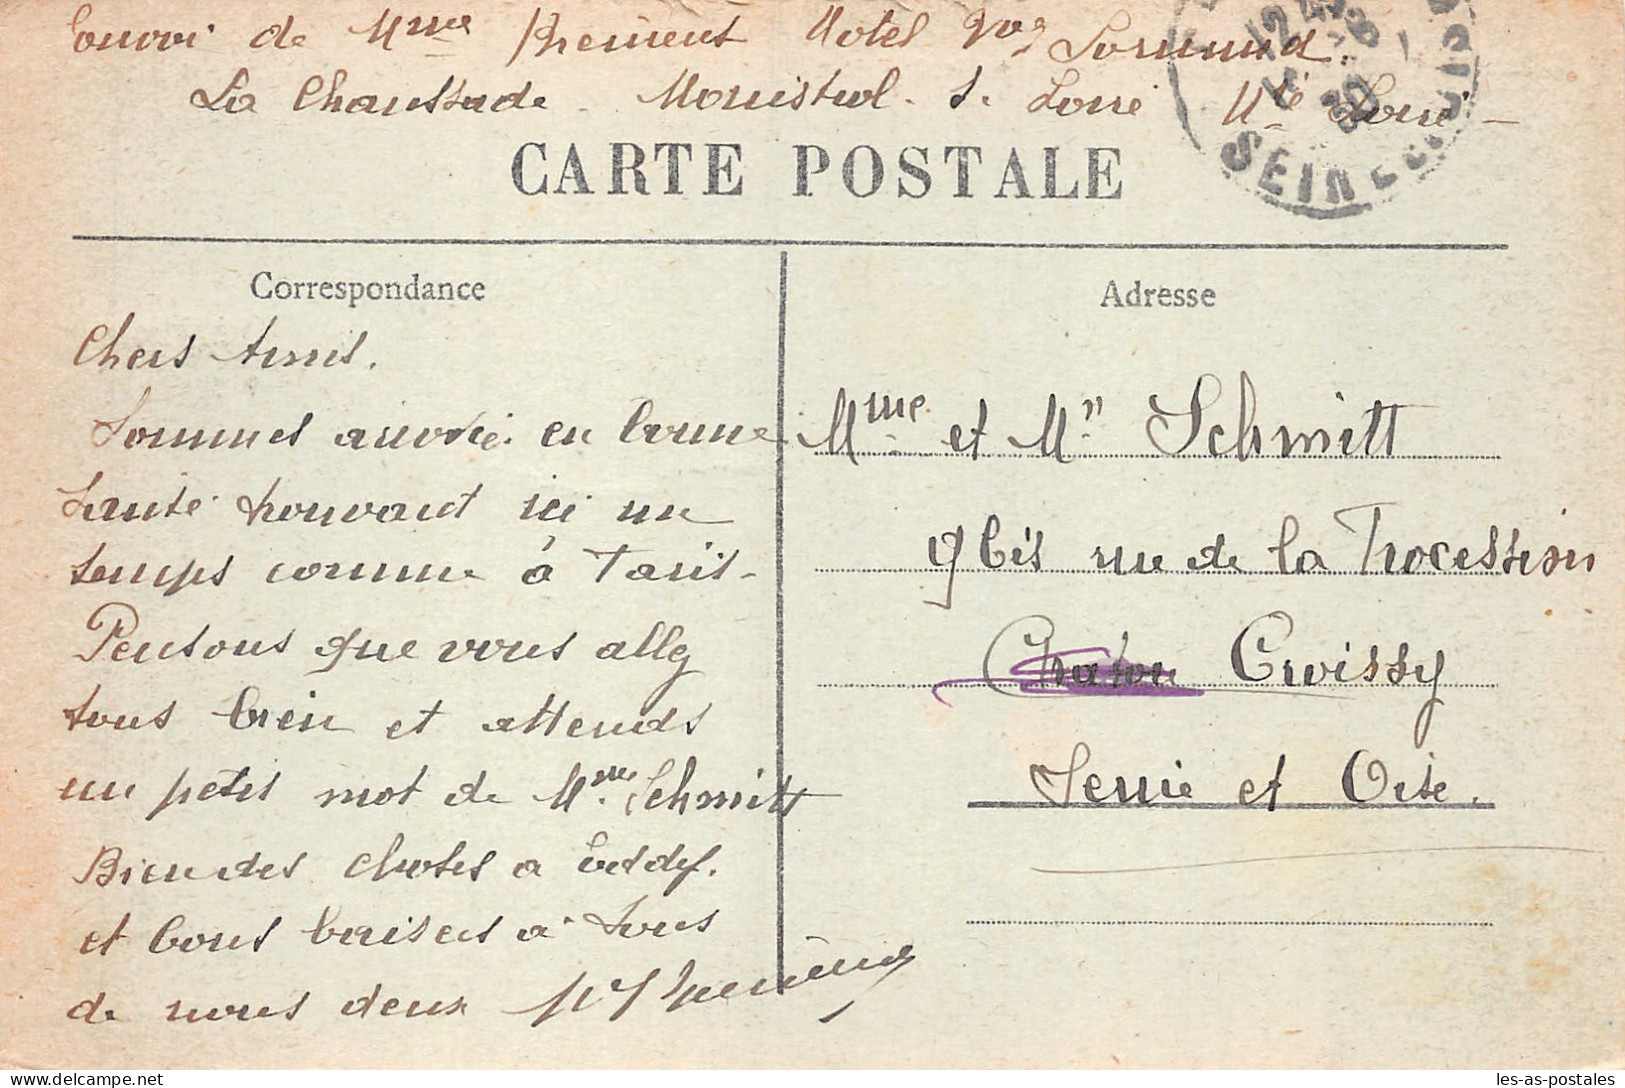 Envoi de Mme Hotel
La Chaussade. Monistrol. S. Loire Hte Loire
SEINE
CARTE POSTALE
Correspondance
Adresse
Chers Amis.
Sommes arrivés en bonne
santé trouvant ici un
temps comme à Paris.
Pensons que vous allez
tous bien et attends
un petit mot de Mme Schmitt
Bien des choses a
et bons baisers à tous
de nous deux
Mme et Mr Schmitt
9 bis rue de la Procession
Chatou Croissy
Seine et Oise.
les-as-postales